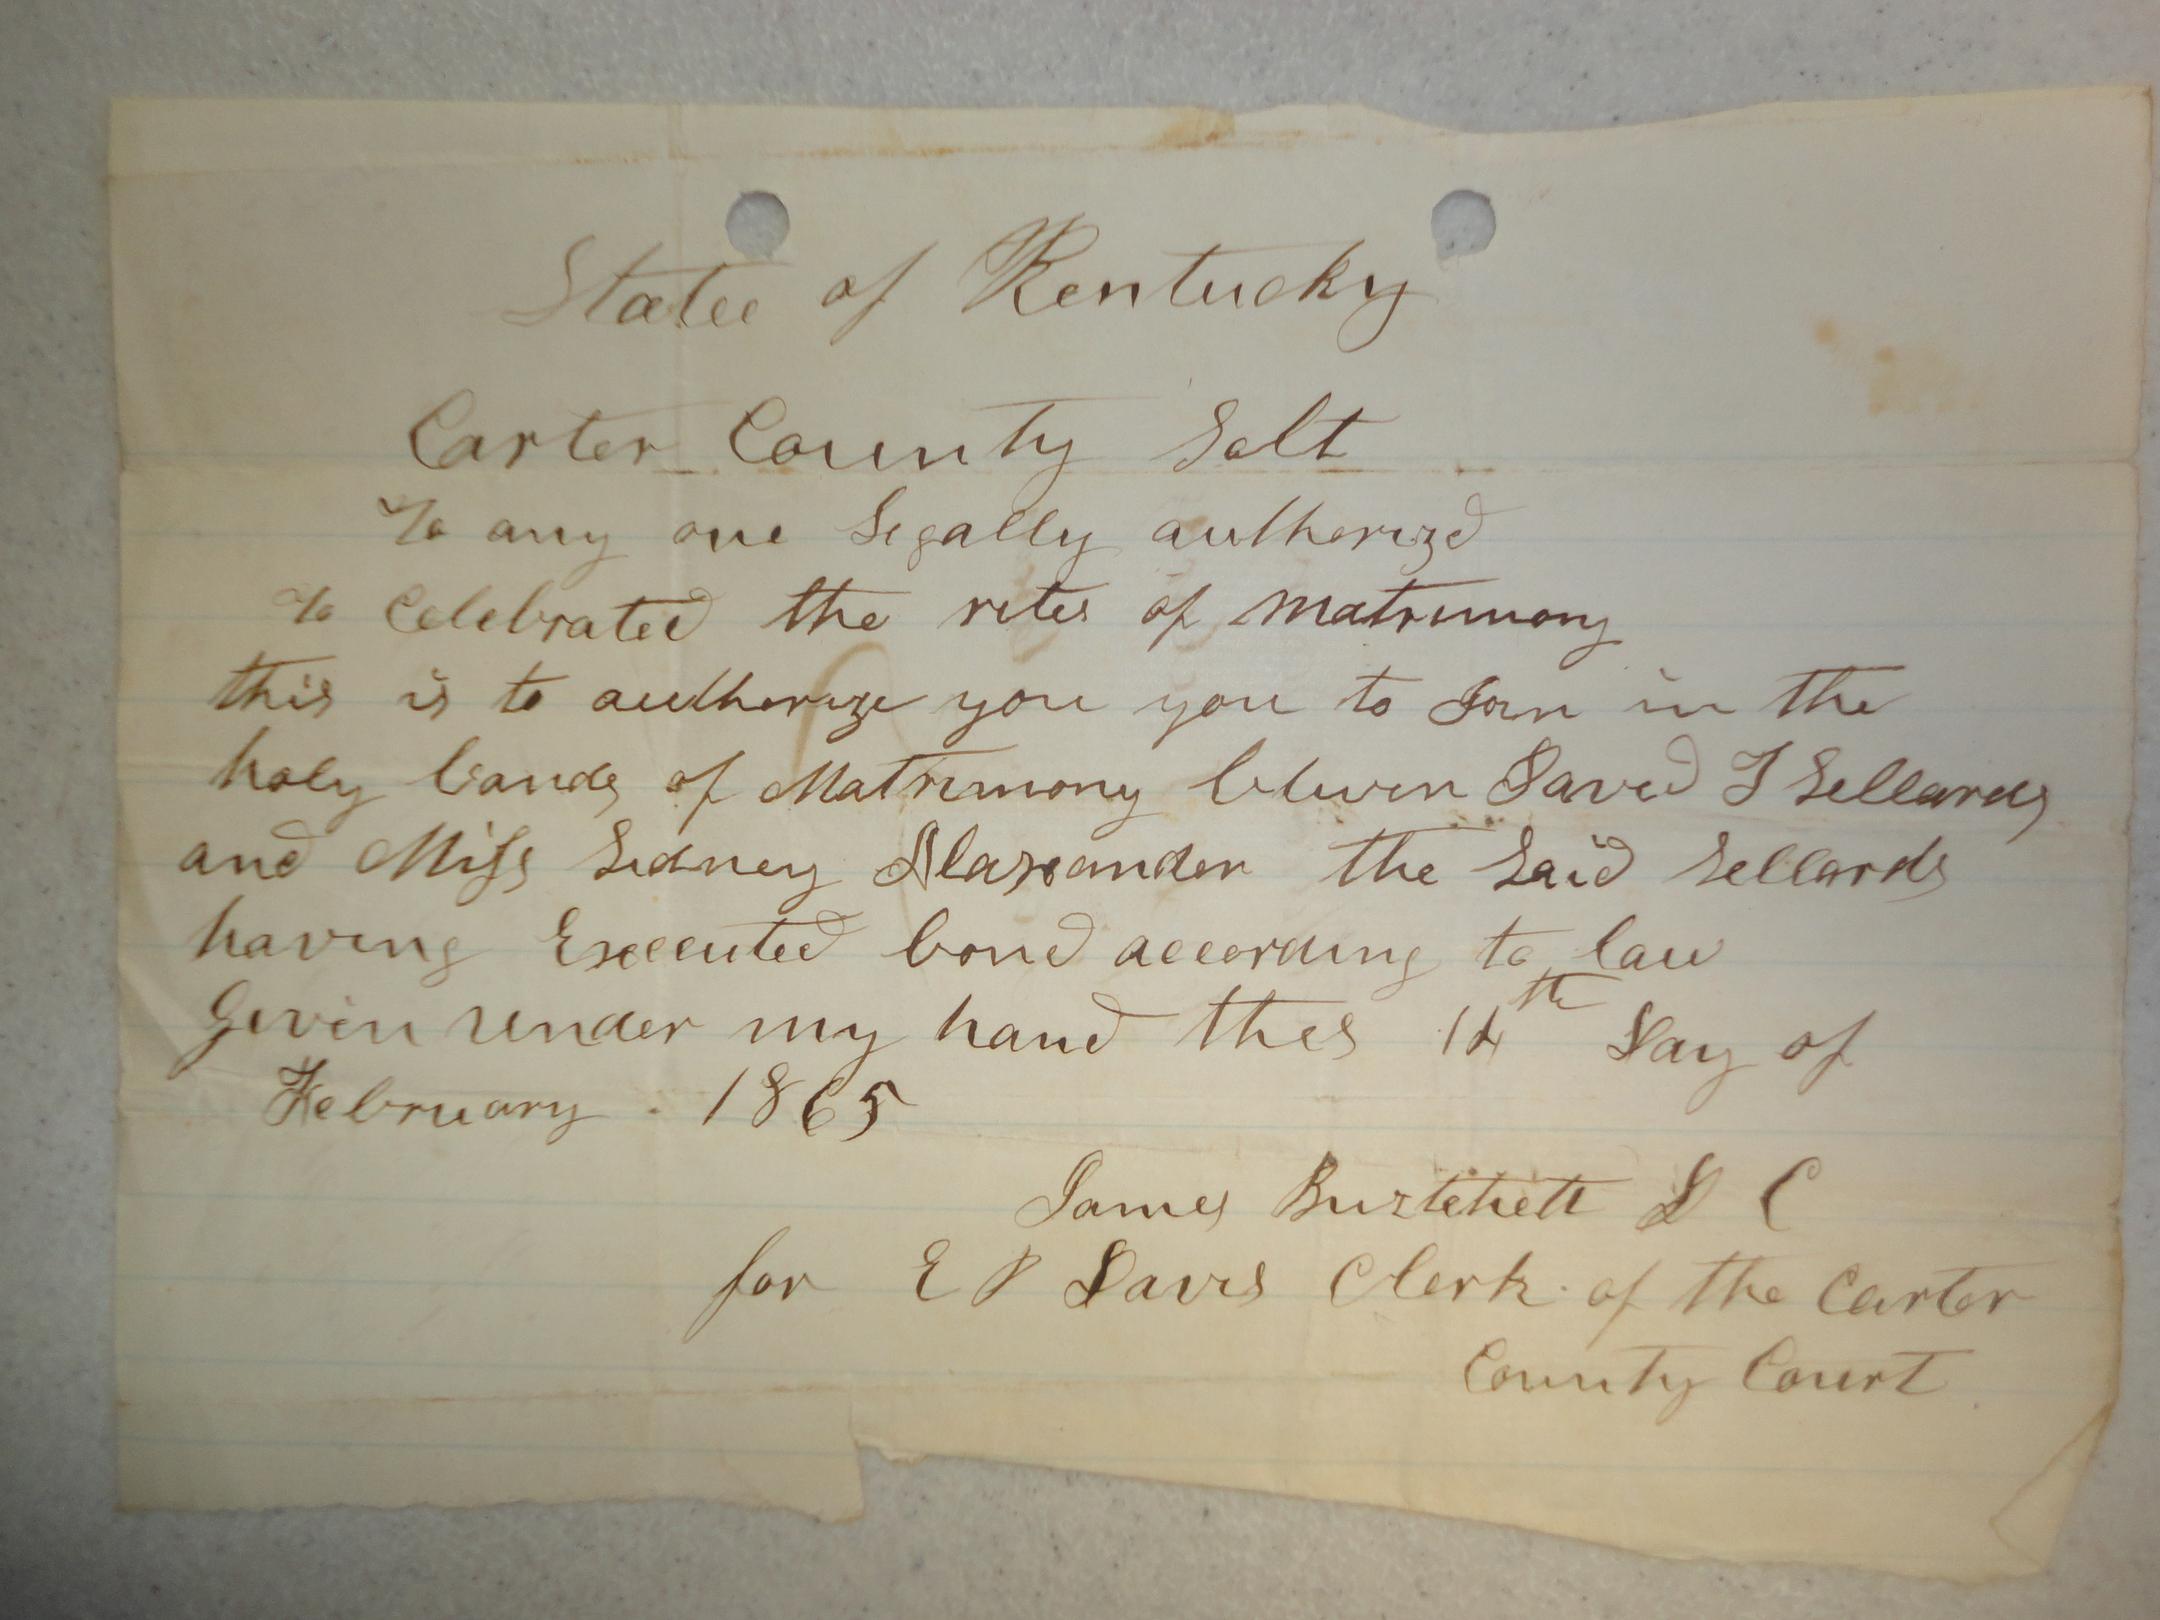 State of Kentucky
Carter County Solt
To any one Legally authorizd
to Celebrated the rites of Matrimony
this is to authorize you you to Join in the
holy bands of Matrimony btween David T Sellards
and Miss Sidney Alaxander the Said Sellards
having Executed bond according to law
Given under my hand this 14th Day of
February 1865
James D C
for E P Davis Clerk of the Carter
County Court